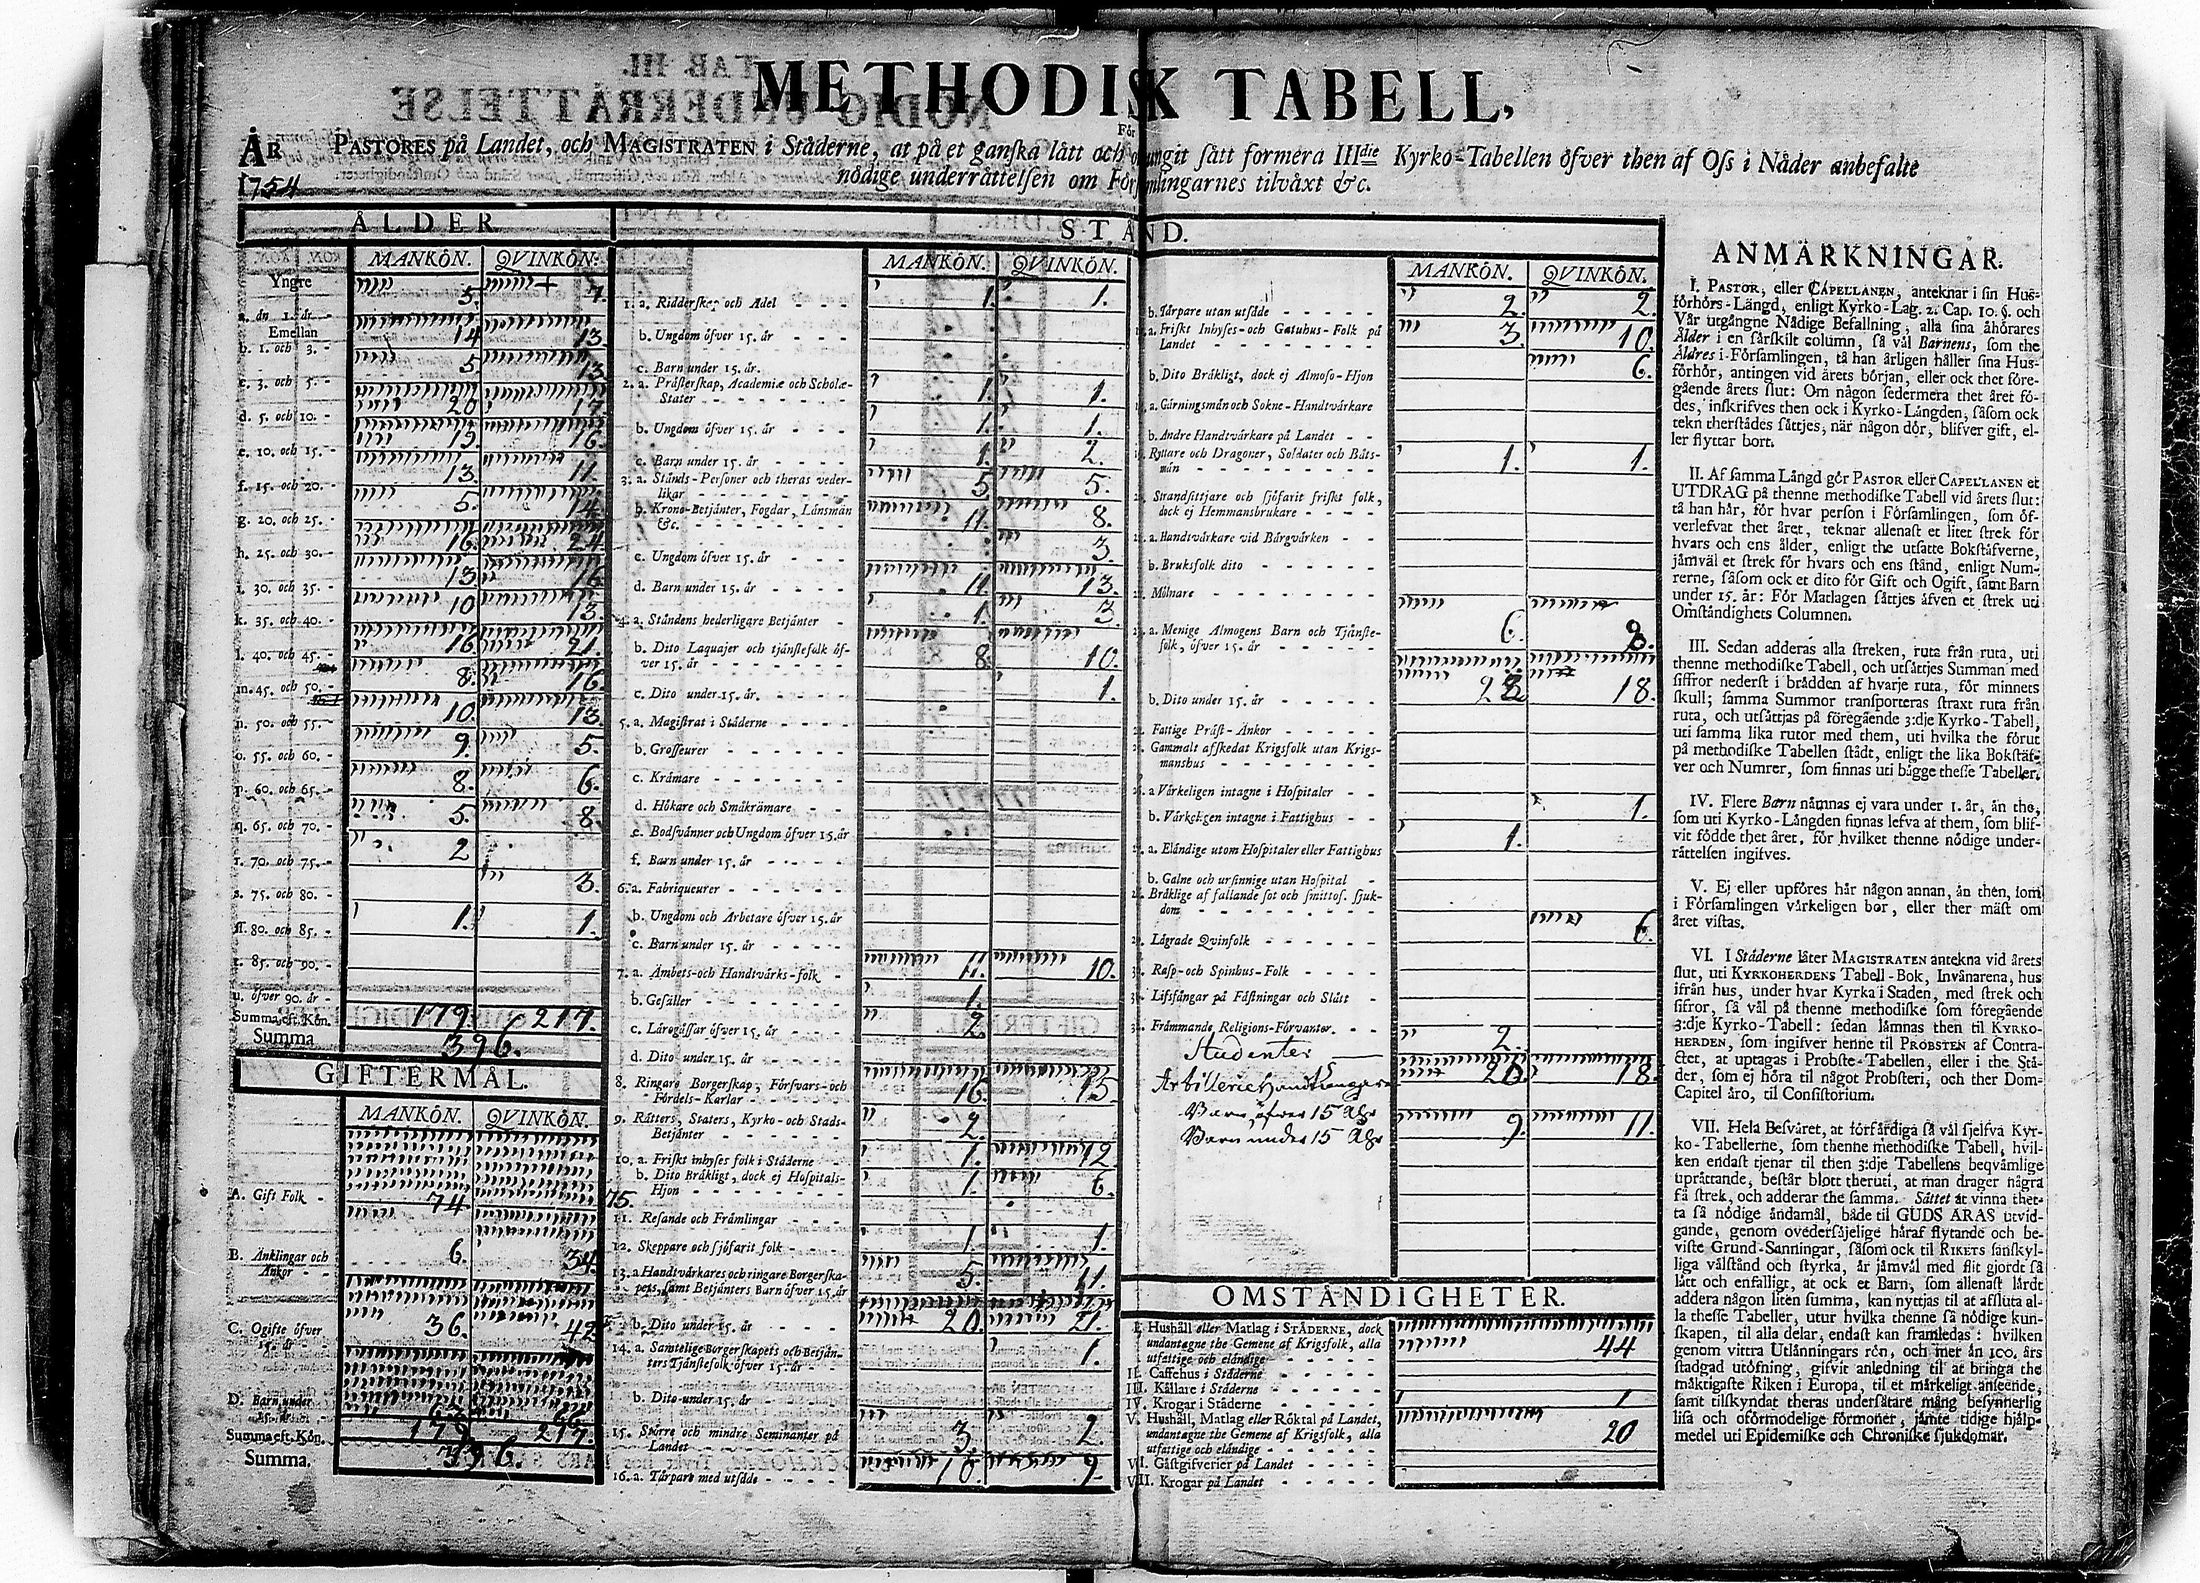 METHODISK TABELL,
För
PASTORES på Landet, och MAGISTRATEN i Städerne, at på et ganska lätt och otvungit sätt formera IIIdie Kyrko-Tabellen öfver then af Oss i Nåder anbefalte
nödige underrättelsen om Församlingarnes tilväxt &c.
ÅR
1754
ÅLDER
MANKÖN. QVINKÖN.
Yngre
a. än 1. år - 5. 7.
Emellan
b. 1. och 3. - 14 13.
c. 3. och 5. - 5. 13
d. 5. och 10. - 20 17.
e. 10. och 15. - 19. 16.
f. 15. och 20. - 13. 11.
g. 20. och 25. - 5. 14.
h. 25. och 30. - 16. 24
i. 30. och 35. - 13. 16.
k. 35. och 40. - 10 13.
l. 40. och 45. - 16. 21.
m. 45. och 50. - 8. 16.
n. 50. och 55. - 10. 13.
o. 55. och 60. - 9. 5.
p. 60. och 65. - 8. 6.
q. 65. och 70. - 5. 8.
r. 70. och 75. - 2
s. 75. och 80. - 3.
ss. 80. och 85. - 1. 1.
t. 85. och 90. -
u. öfver 90. år -
Summa est. Kön. 179. 217.
Summa 396.
GIFTERMÅL.
MANKÖN. QVINKÖN.
A. Gift Folk - 74 75.
B. Änklingar och
Änkor - - 6. 34.
C. Ogifte öfver
15. år - 36. 42
D. Barn under
15. år - 63. 66.
Summa est. Kön. 179. 217.
Summa. 396.
STÅND.
MANKÖN. QVINKÖN.
1. a. Ridderskap och Adel - - - 1. 1.
b. Ungdom öfver 15. år - - -
c. Barn under 15. år.
2. a. Prästerskap, Academiæ och Scholæ-
Stater - - - - - - - 1. 1.
b. Ungdom öfver 15. år - - - 1. 1.
c. Barn under 15. år - - - - 1. 2.
3. a. Stånds-Personer och theras veder-
likar - - - - - - - 5. 5.
b. Krono-Betjänter, Fogdar, Länsmän
&c. - - - - - - - 11. 8.
c. Ungdom öfver 15. år - - - 3.
d. Barn under 15. år - - - - 11. 13.
4. a. Ståndens hederligare Betjänter - 1. 3.
b. Dito Laquajer och tjänstefolk öf-
ver 15. år - - - - - - 8. 10.
c. Dito under 15. år. - - - - 1.
5. a. Magistrat i Städerne - - - -
b. Grosseurer - - - - - -
c. Krämare - - - - - - -
d. Hökare och Småkrämare - -
e. Bodsvänner och Ungdom öfver 15. år
f. Barn under 15. år - - - -
6. a. Fabriqueurer - - - - - -
b. Ungdom och Arbetare öfver 15. år
c. Barn under 15. år - - - -
7. a. Ämbets-och Handtvärks-folk - 11. 10.
b. Gesäller - - - - - - - 1.
c. Lärogåssar öfver 15. år - - - 2.
d. Dito under 15. år - - - -
8. Ringare Borgerskap, Försvars-och
Fördels-Karlar - - - - - 16. 15.
9. Rätters, Staters, Kyrko-och Stads-
Betjänter - - - - - - 2.
10. a. Friskt inhyses folk i Städerne - 1. 12
b. Dito Bräkligt, dock ej Hospitals-
Hjon - - - - - - - 1. 6.
11. Resande och Främlingar - - -
12. Skeppare och sjöfarit folk - - - 1. 1.
13. a Handtvärkares och ringare Borgerska-
pets, samt Betjänters Barn öfver 15. år 5. 11.
b. Dito under 15. år - - - - 20. 21.
14. a. Samtelige Borgerskapets och Betjän-
ters Tjänstefolk öfver 15. år - - 1.
b. Dito under 15. år - - - -
15. Större och mindre Seminanter på
Landet - - - - - - - 3. 2.
16. a. Torpare med utsäde - - - - 10. 9.
MANKÖN. QVINKÖN.
b. Torpare utan utsäde - - - - - 2. 2.
a. Friskt Inhyses-och Gatuhus-Folk på
Landet - - - - - - - - - 3. 10.
b. Dito Bräkligt, dock ej Almoso-Hjon 6.
a. Gärningsmän och Sokne-Handtvärkare
b. Andre Handtvärkare på Landet - -
Ryttare och Dragoner, Soldater och Båts-
män - - - - - - - - - - 1. 1.
Strandsittjare och sjöfarit friskt folk,
dock ej Hemmansbrukare - - - -
a. Handtvärkare vid Bärgvärken - -
b. Bruksfolk dito - - - - - -
Mölnare - - - - - - - - -
a. Menige Almogens Barn och Tjänste-
folk, öfver 15. år - - - - - - 6. 8.
b. Dito under 15. år - - - - - 22 18.
Fattige Präst-Änkor - - - - -
Gammalt afskedat Krigsfolk utan Krigs-
manshus - - - - - - - - -
a Värkeligen intagne i Hospitaler - -
b. Värkeligen intagne i Fattighus - - 1.
a. Eländige utom Hospitaler eller Fattighus 1.
b. Galne och ursinnige utan Hospital -
Bräklige af fallande sot och smittos. sjuk-
dom - - - - - - - - - -
Lägrade Qvinfolk - - - - - - 6.
Rasp-och Spinhus-Folk - - - -
Lifsfångar på Fästningar och Slått -
Främmande Religions-Förvanter. - -
Studenter 2.
Artillerie Handtlangare 20. 18.
Barn öfver 15 Åhr 9. 11.
Barn under 15 Åhr
OMSTÄNDIGHETER.
I. Hushåll eller Matlag i STÄDERNE, dock
undantagne the Gemene af Krigsfolk, alla
utfattige och eländige - - - - - - 44
II. Caffehus i Städerne - - - - - -
III. Källare i Städerne - - - - - -
IV. Krogar i Städerne - - - - - - 1
V. Hushåll, Matlag eller Röktal på Landet,
undantagne the Gemene af Krigsfolk, alla
utfattige och eländige - - - - - - 20
VI. Gästgifverier på Landet - - - -
VII. Krogar på Landet - - - - - -
ANMÄRKNINGAR.
I. PASTOR, eller CAPELLANEN, anteknar i sin Hus-
förhörs-Längd, enligt Kyrko-Lag. 2. Cap. 10. §. och
Vår utgångne Nådige Befallning, alla sina åhörares
Ålder i en särskilt column, så väl Barnens, som the
Äldres i Församlingen, tå han årligen håller sina Hus-
förhör, antingen vid årets början, eller ock thet före-
gående årets slut: Om någon sedermera thet året fö-
des, inskrifves then ock i Kyrko-Längden, såsom ock
tekn therstädes sättjes, när någon dör, blifver gift, el-
ler flyttar bort.
II. Af samma Längd gör PASTOR eller CAPELLANEN et
UTDRAG på thenne methodiske Tabell vid årets slut:
tå han här, för hvar person i Församlingen, som öf-
verlefvat thet året, teknar allenast et litet strek för
hvars och ens ålder, enligt the utsatte Bokstäfverne,
jämväl et strek för hvars och ens stånd, enligt Num-
rerne, såsom ock et dito för Gift och Ogift, samt Barn
under 15. år: För Matlagen sättjes äfven et strek uti
Omständighets Columnen.
III. Sedan adderas alla streken, ruta från ruta, uti
thenne methodiske Tabell, och utsättjes Summan med
siffror nederst i brädden af hvarje ruta, för minnets
skull; samma Summor transporteras straxt ruta från
ruta, och utsättjas på föregående 3:dje Kyrko-Tabell,
uti samma lika rutor med them, uti hvilka the förut
på methodiske Tabellen stådt, enligt the lika Bokstäf-
ver och Numrer, som finnas uti bägge thesse Tabeller.
IV. Flere Barn nämnas ej vara under 1. år, än the,
som uti Kyrko-Längden finnas lefva af them, som blif-
vit födde thet året, för hvilket thenne nödige under-
rättelsen ingifves.
V. Ej eller upföres här någon annan, än then, som
i Församlingen värkeligen bor, eller ther mäst om
året vistas.
VI. I Städerne låter MAGISTRATEN antekna vid årets
slut, uti KYRKOHERDENS Tabell-Bok, Invånarena, hus
ifrån hus, under hvar Kyrka i Staden, med strek och
sifror, så väl på thenne methodiske som föregående
3:dje Kyrko-Tabell: sedan lämnas then til KYRKO-
HERDEN, som ingifver henne til PROBSTEN af Contra-
ctet, at uptagas i Probste-Tabellen, eller i the Stä-
der, som ej höra til något Probsteri, och ther Dom-
Capitel äro, til Consistorium.
VII. Hela Besväret, at förfärdiga så väl sjelfva Kyr-
ko-Tabellerne, som thenne methodiske Tabell, hvil-
ken endast tjenar til then 3:dje Tabellens beqvämlige
uprättande, består blott theruti, at man drager några
få strek, och adderar the samma. Sättet at vinna thet-
ta så nödige ändamål, både til GUDS ÄRAS utvid-
gande, genom ovedersäjelige häraf flytande och be-
viste Grund-Sanningar, såsom ock til RIKETS sanskyl-
liga välstånd och styrka, är jämväl med flit gjordt så
lätt och enfalligt, at ock et Barn, som allenast lärdt
addera någon liten summa, kan nyttjas til at afsluta al-
la thesse Tabeller, utur hvilka thenne så nödige kun-
skapen, til alla delar, endast kan framledas: hvilken
genom vittra Utlänningars rön, och mer än 100. års
stadgad utöfning, gifvit anledning til at bringa the
mäktigaste Riken i Europa, til et märkeligt anseende,
samt tilskyndat theras undersåtare mång besynnerlig
lisa och oförmodelige förmoner, jämte tidige hjälp-
medel uti Epidemiske och Chroniske sjukdomar.